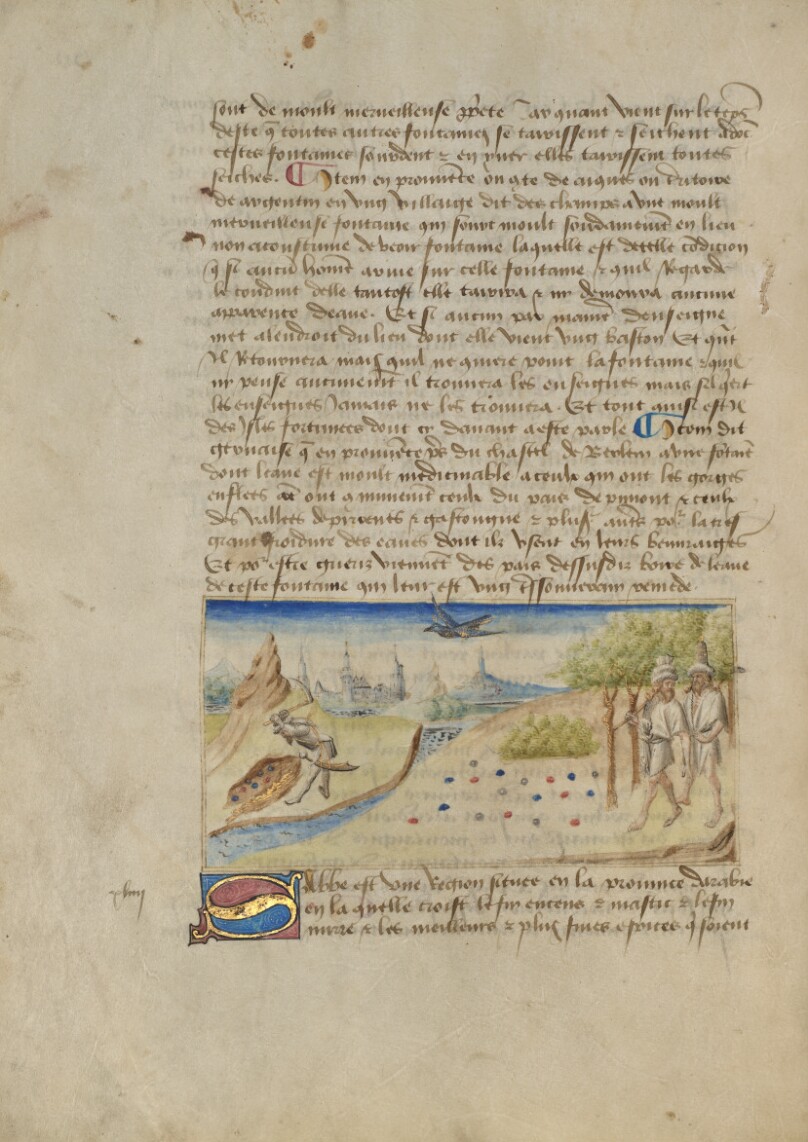 sont de moult merueilleuse Car quant vient sur le tẽps
deste q̃ toutes autres fontaines se tarissent & seichent adoc̃
cestes fontaines sourdent & en yuer elles tarissent toutes
seiches. ¶ Item en prouuẽce
de argentin en vng villaige dit des champs a vne moult
merueilleuse fontaine qui sourt moult soudainemẽt en lieu
non acoustume de veoir fontaine laquelle est de telle cõdicion
q̃ si aucũ homẽ arriue sur celle fontaine & quil Regarde
le conduit delle tantost elle tarira & ny demoura aucune
apparence deaue. Et si aucun par maniẽ denseigne
met alendroit du lieu dont elle vient vng baston Et qñt
Il Retournera mais quil ne quiere point la fontaine & quil
ny pense aucunemẽt il trouuera les enseignes mais sil q̃ert
les enseignes Jamais ne les trouuera. Et tout ainsi est Il
des Isles fortunees dont cy deuant a este parle ¶ Item dit
geruaise q̃ en prouuẽce p̃s du chastel de a vne fõtaiẽ
dont leaue est moult medicinable a ceulx qui ont les gorges
enflees ont cõmunemẽt ceulx du pais de pimont & ceulx
des vallees & gascongne & plusʳˢ autˢ poʳ la tresˢ
grant froidure des eaues dont ilz vsent en leurs beuuraiges
Et poʳ estre gueriz viennẽt des pais dessusdiz boire de leaue
de ceste fontaine qui leur est vng remede.
Sabbe est vne Region situee en la prouince darabie
en la quelle croist le fin encens & mastic & le fin
mirre & les meilleurs & plus fines espices q̃ soient